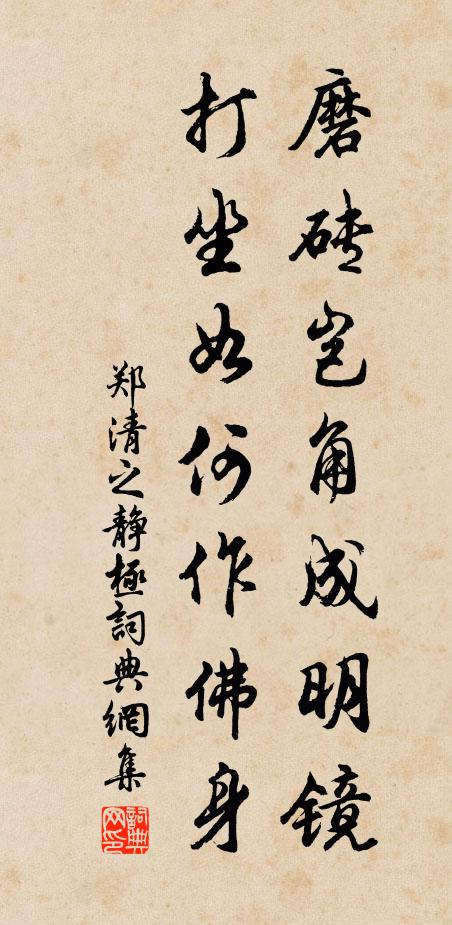 磨砖岂角成明镜
打坐如何作佛身
郑清之静極詞典網集
詞典网印